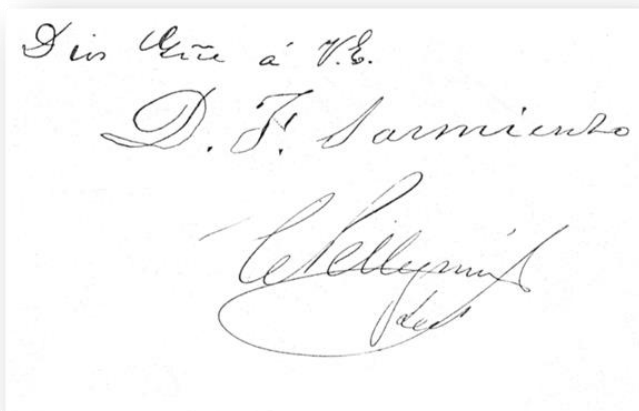 Dios Gũe á V.E.
D. F. Sarmiento
C Pellegrini